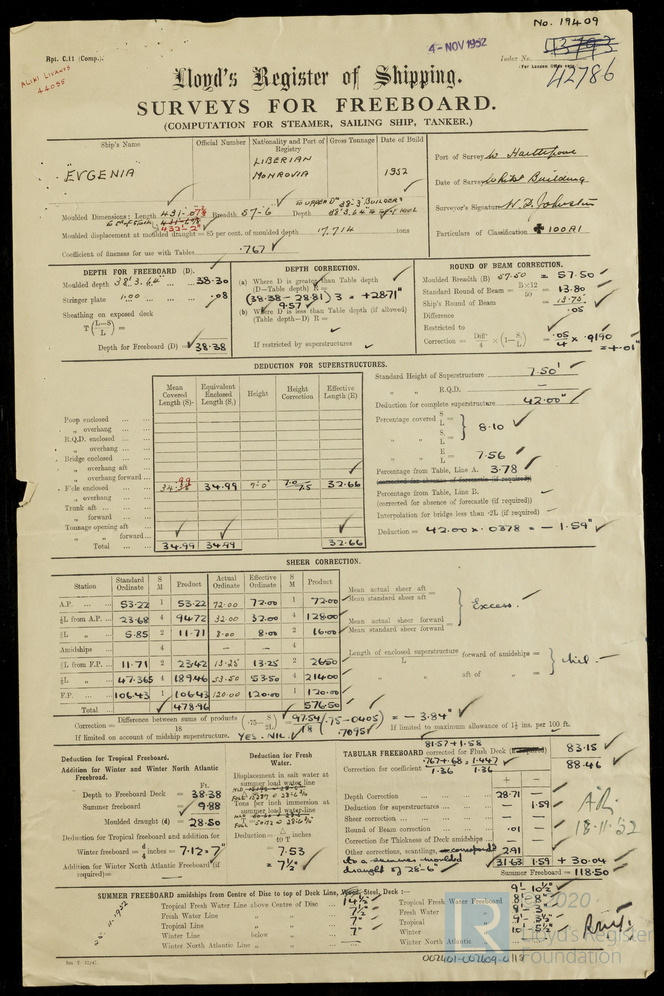 No. 19409
Rpt. C.11 (Comp.).
4-NOV 1952
Index No.
(For London Office only)
42786
ALIKI LIVANOS
44055
Lloyd's Register of Shipping.
SURVEYS FOR FREEBOARD.
(COMPUTATION FOR STEAMER, SAILING SHIP, TANKER.)
Ship's Name Official Number Nationality and Port of Registry Gross Tonnage Date of Build
EVGENIA LIBERIAN MONROVIA 1952
Port of Survey W. Hartlepool
Date of Survey Whilst Building
Surveyor's Signature W. D. Johnston
Particulars of Classification ✠ 100A1
Moulded Dimensions: Length Breadth 57-6 Depth
Moulded displacement at moulded draught = 85 per cent. of moulded depth 17,714 tons
Coefficient of fineness for use with Tables .767
DEPTH FOR FREEBOARD (D).
Moulded depth 38' 3.64" 38.30
Stringer plate 1.00 .08
Sheathing on exposed deck
T (L-S / L) =
Depth for Freeboard (D) = 38.38
DEPTH CORRECTION.
(a) Where D is greater than Table depth
(D-Table depth) R =
(38.38 - 28.81) 3 = +28.71"
9.57
(b) Where D is less than Table depth (if allowed)
(Table depth-D) R =
If restricted by superstructures
ROUND OF BEAM CORRECTION.
Moulded Breadth (B) 57.50 = 57.50
Standard Round of Beam = B×12 / 50 = 13.80
Ship's Round of Beam = 13.75
Difference .05
Restricted to
Correction = Diffce / 4 × (1 - S1 / L) = .05 / 4 × .9190
= +.01"
DEDUCTION FOR SUPERSTRUCTURES.
Mean Covered Length (S) Equivalent Enclosed Length (S1) Height Height Correction Effective Length (E)
Poop enclosed
„ overhang
R.Q.D. enclosed
„ overhang
Bridge enclosed
„ overhang aft
„ overhang forward
F'cle enclosed 34.99 34.99 7'-0" 7.0 / 7.5 32.66
„ overhang
Trunk aft
„ forward
Tonnage opening aft
„ „ forward
Total 34.99 34.99 32.66
Standard Height of Superstructure 7.50'
„ „ R.Q.D. —
Deduction for complete superstructure 42.00"
Percentage covered S / L =
„ „ S1 / L = 8.10
„ „ E / L = 7.56
Percentage from Table, Line A. 3.78
(corrected for absence of forecastle (if required))
Percentage from Table, Line B.
(corrected for absence of forecastle (if required))
Interpolation for bridge less than ·2L (if required)
Deduction = 42.00 × .0378 = - 1.59"
SHEER CORRECTION.
Station Standard Ordinate S M Product Actual Ordinate Effective Ordinate S M Product
A.P. 53.22 1 53.22 72.00 72.00 1 72.00
⅙L from A.P. 23.68 4 94.72 32.00 32.00 4 128.00
⅓L „ 5.85 2 11.71 8.00 8.00 2 16.00
Amidships 4 — — 4
⅓L from F.P. 11.71 2 23.42 13.25 13.25 2 26.50
⅙L „ 47.365 4 189.46 53.50 53.50 4 214.00
F.P. 106.43 1 106.43 120.00 120.00 1 120.00
Total 478.96 576.50
Mean actual sheer aft
Mean standard sheer aft =
Mean actual sheer forward
Mean standard sheer forward = Excess.
Length of enclosed superstructure forward of amidships =
L
„ „ aft of „ = nil.
Correction = Difference between sums of products / 18 (·75 - S / 2L) = 97.54 / 18 (.75 - .0405) = - 3.84"
.7095
If limited on account of midship superstructure. YES. NIL.
If limited to maximum allowance of 1½ ins. per 100 ft.
Deduction for Tropical Freeboard.
Addition for Winter and Winter North Atlantic Freeboard.
Ft.
Depth to Freeboard Deck = 38.38
Summer freeboard = 9.88
Moulded draught (d) = 28.50
Deduction for Tropical freeboard and addition for
Winter freeboard = d / 4 inches = 7.12 = 7"
Addition for Winter North Atlantic Freeboard (if required) =
Deduction for Fresh Water.
Displacement in salt water at summer load water line
Tons per inch immersion at summer load water-line
Deduction = Δ / 40 T inches
= 7.53
= 7½"
TABULAR FREEBOARD corrected for Flush Deck (if required)
81.57 + 1.58
83.15
Correction for coefficient .767 + .68 / 1.36 = 1.447 / 1.36
88.46
+ -
Depth Correction 28.71 —
Deduction for superstructures — 1.59
Sheer correction — —
Round of Beam correction .01 —
Correction for Thickness of Deck amidships — —
Other corrections, scantlings, 2.91
to a summer moulded
draught of 28'-6"
31.63 1.59 + 30.04
Summer Freeboard = 118.50
18-11-'52
SUMMER FREEBOARD amidships from Centre of Disc to top of Deck Line, Steel, Deck :—
Tropical Fresh Water Line above Centre of Disc 14½"
Fresh Water Line „ „ 7½"
Tropical Line „ „ 7"
Winter Line below „ 7"
Winter North Atlantic Line „ „
9'- 10½"
Tropical Fresh Water Freeboard 8'- 8"
Fresh Water „ 9'- 3"
Tropical „ 9'- 3½"
Winter „ 10'- 5½"
Winter North Atlantic „
© 2020
LR
Lloyd's Register
Foundation
002401-002409-0118